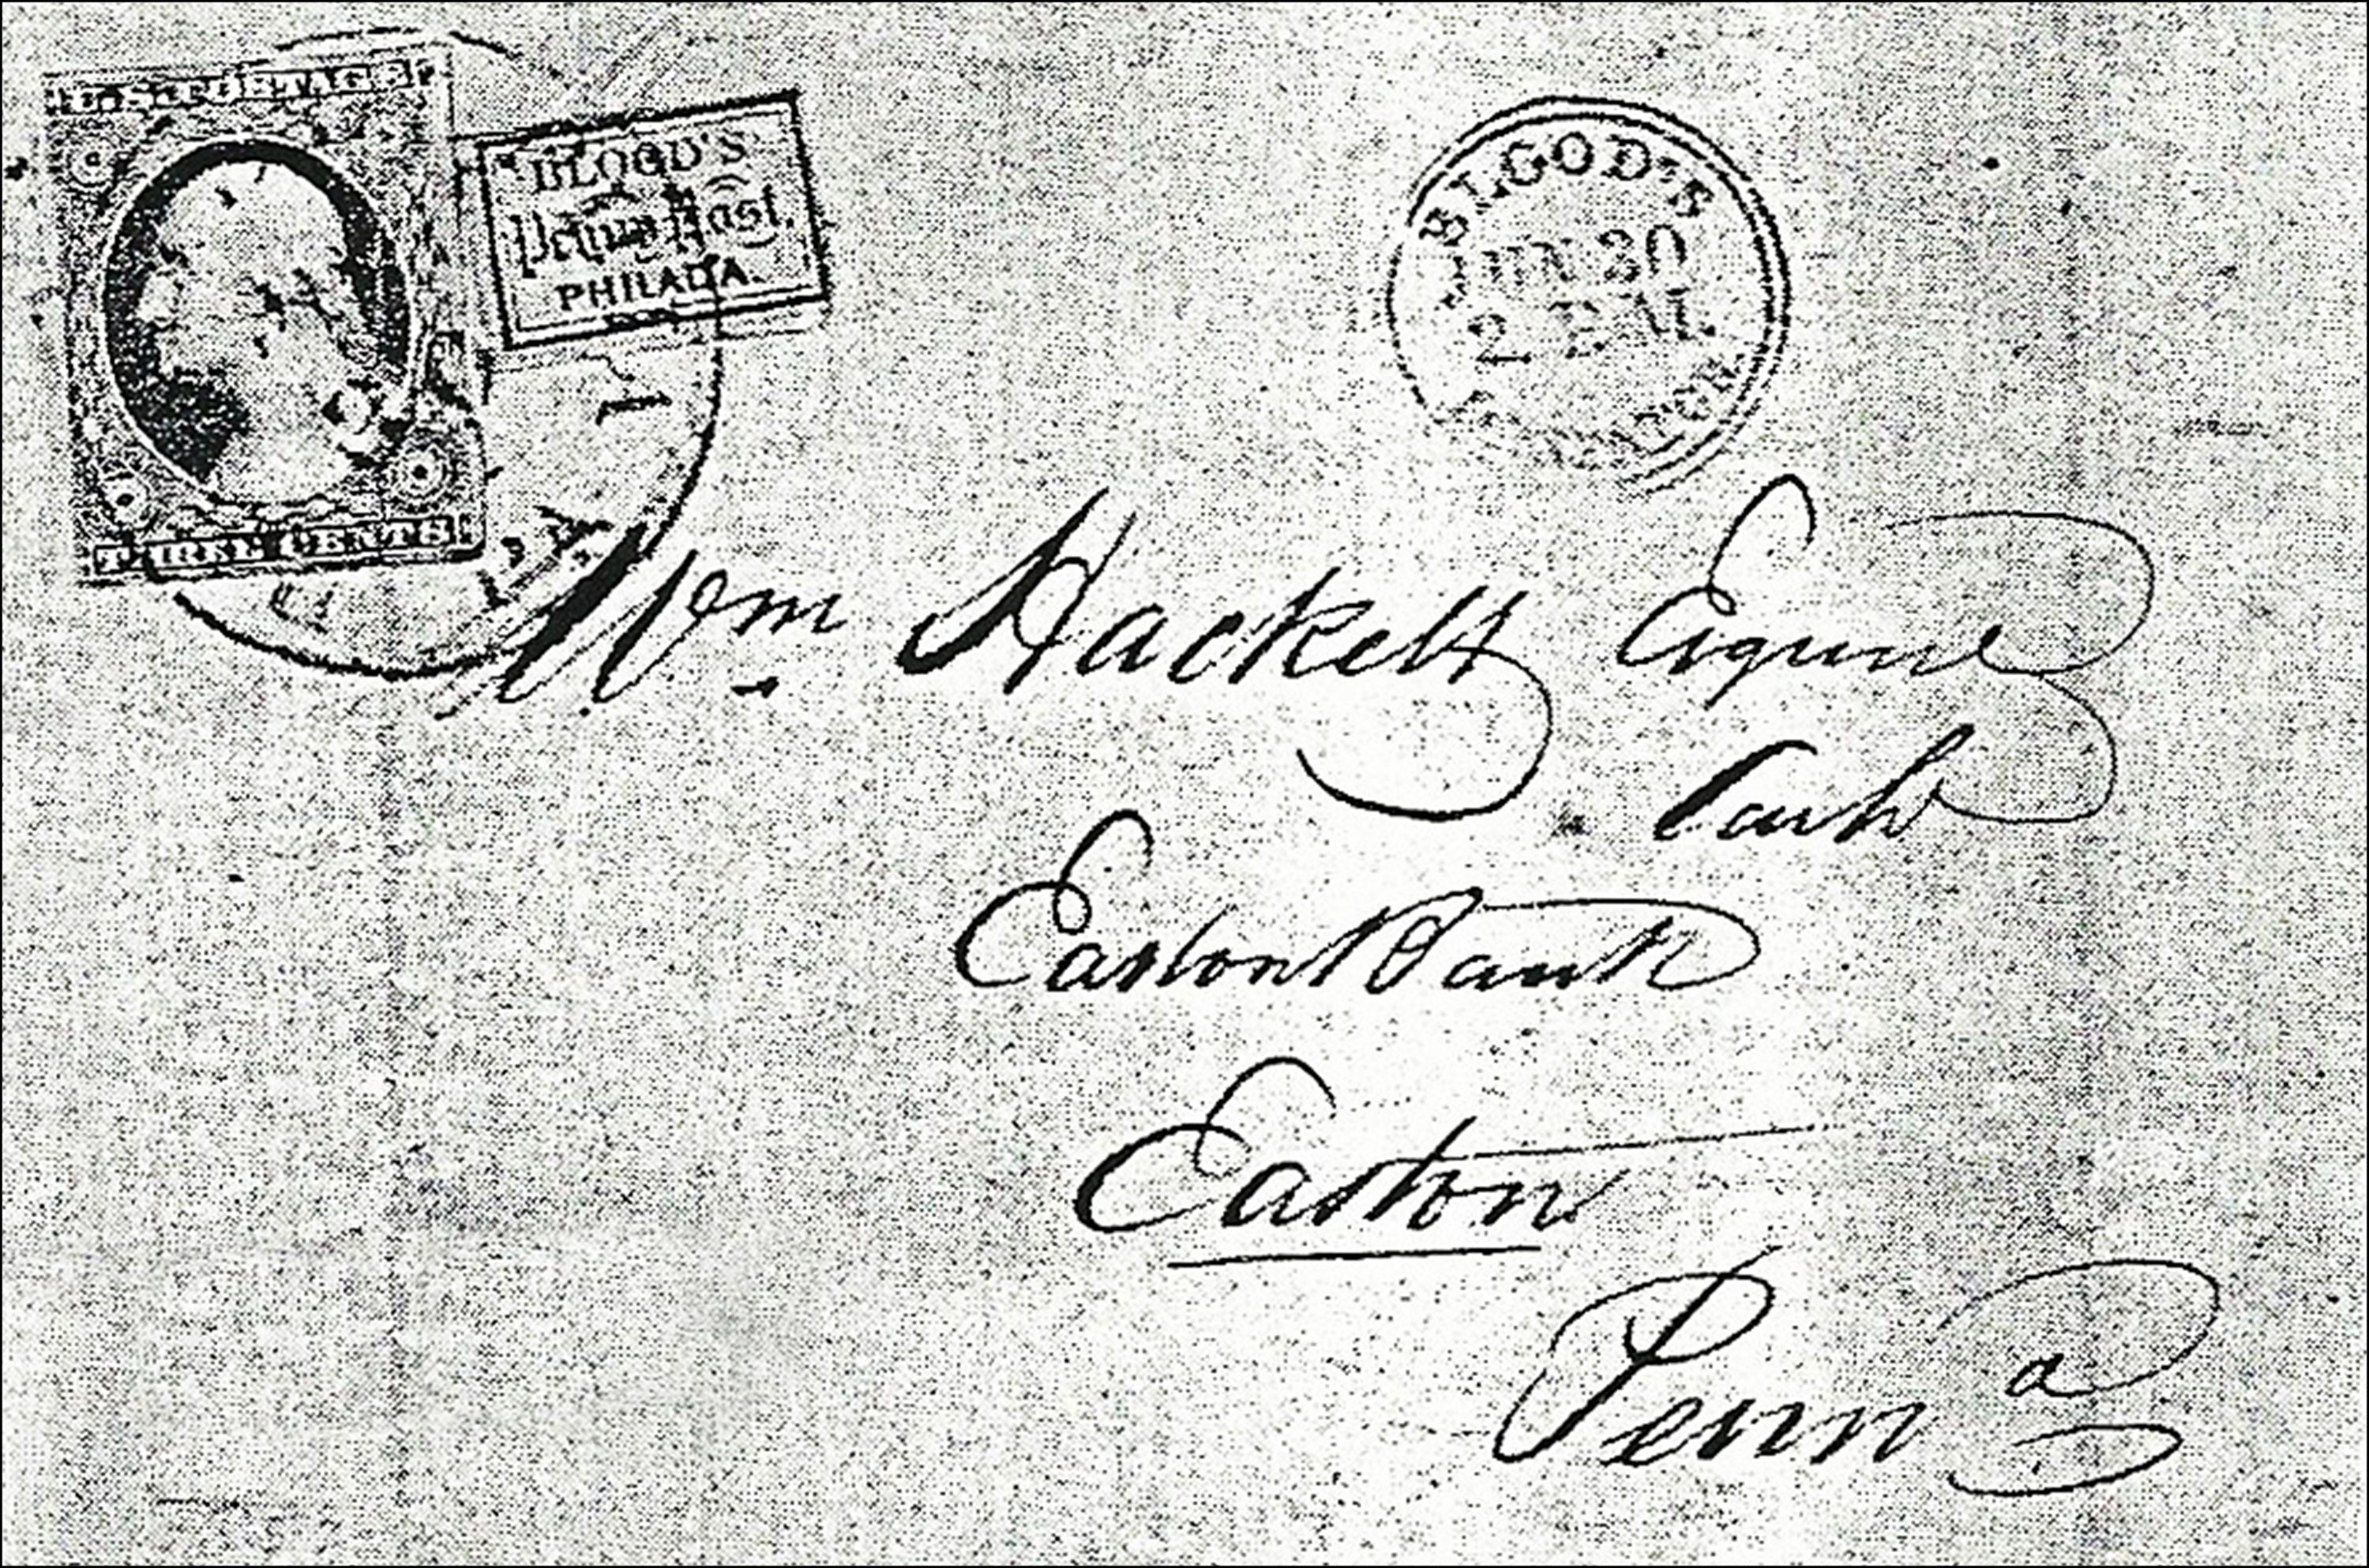 U.S. POSTAGE
THREE CENTS
BLOOD'S
Penny Post,
PHILADA.
BLOOD'S
JUN 30
2 P M
DESPATCH
Wm Hackett Esquire
Cash
Easton Bank
Easton
Penn a